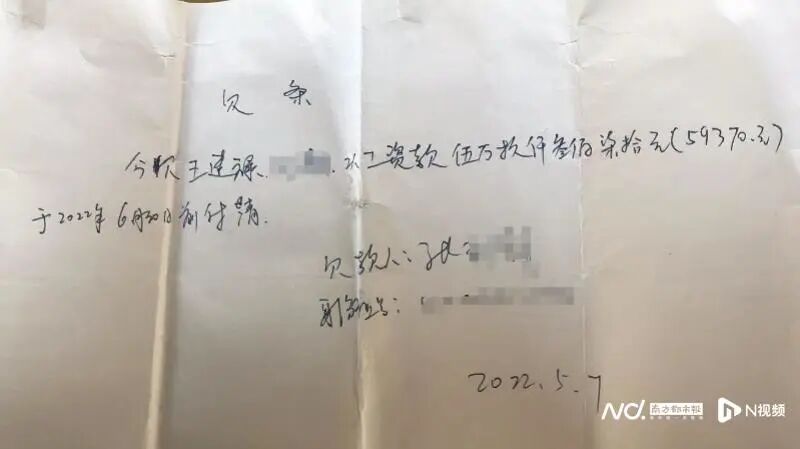 欠条
今欠王连 工资款伍万玖仟叁佰柒拾元(59370.元)
于2022年6月30日前付清.
欠款人:张
身份证号:
2022.5.7
南方都市报 N视频